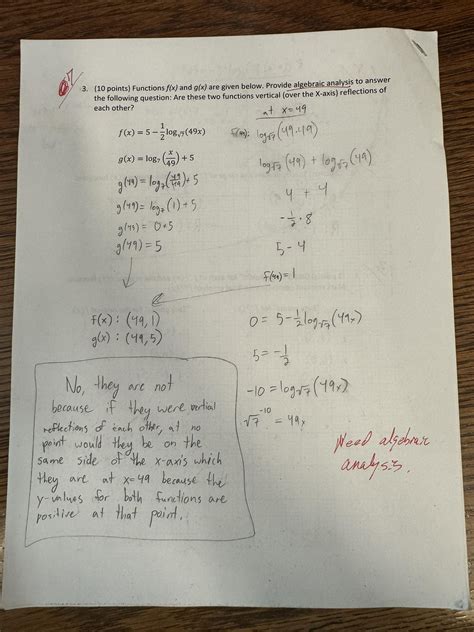 3. (10 points) Functions f(x) and g(x) are given below. Provide algebraic analysis to answer
the following question: Are these two functions vertical (over the X-axis) reflections of
each other?
at x=49
f(x) = 5 − 1/2 log_√7(49x)
log_√7(49·49)
g(x) = log₇(x/49) + 5
log_√7(49) + log_√7(49)
g(49) = log₇(49/49) + 5
4 + 4
g(49) = log₇(1) + 5
-1/2 · 8
g(49) = 0+5
5-4
g(49) = 5
f(49) = 1
f(x) : (49, 1)
g(x) : (49, 5)
0 = 5 - 1/2 log_√7(49x)
5 = -1/2
-10 = log_√7(49x)
√7^-10 = 49x
No, they are not
because if they were vertial
reflections of each other, at no
point would they be on the
same side of the x-axis which
they are at x=49 because the
y-values for both functions are
positive at that point.
Need algebraic
analysis.